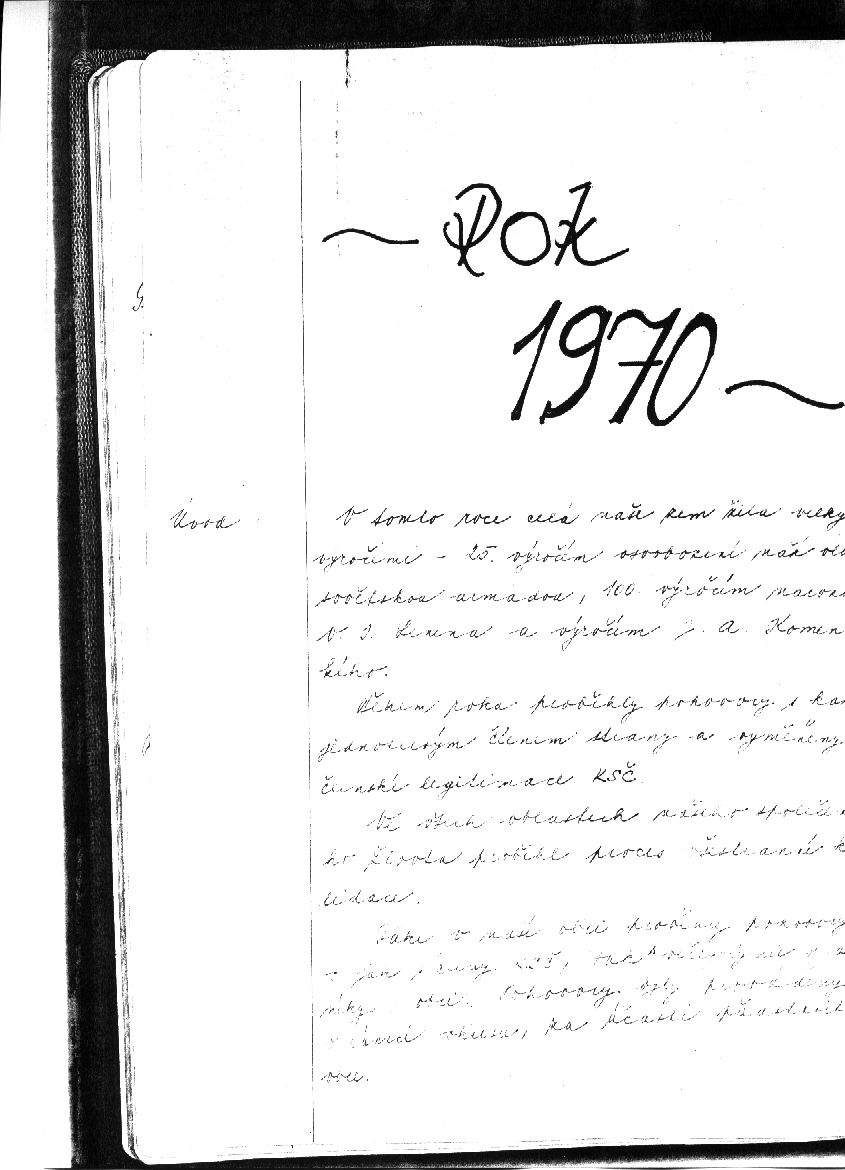 ~ Rok
1970 ~
Úvod
V tomto roce celá naše zem žila velký
výročími - 25. výročím osvobození naší vla
sovětskou armádou, 100. výročím naroze
V. I. Lenina a výročím J. A. Komen
kého.
Během roku proběhly pohovory s ka
jednotlivým členem strany a vyměněny
členské legitimace KSČ.
Ve všech oblastech našeho společe
ho života proběhl proces všestranné k
lidace.
Také v naší obci proběhly pohovory
- jak s členy KSČ, tak
obce. Pohovory byly prováděny
za účasti představit
obce.